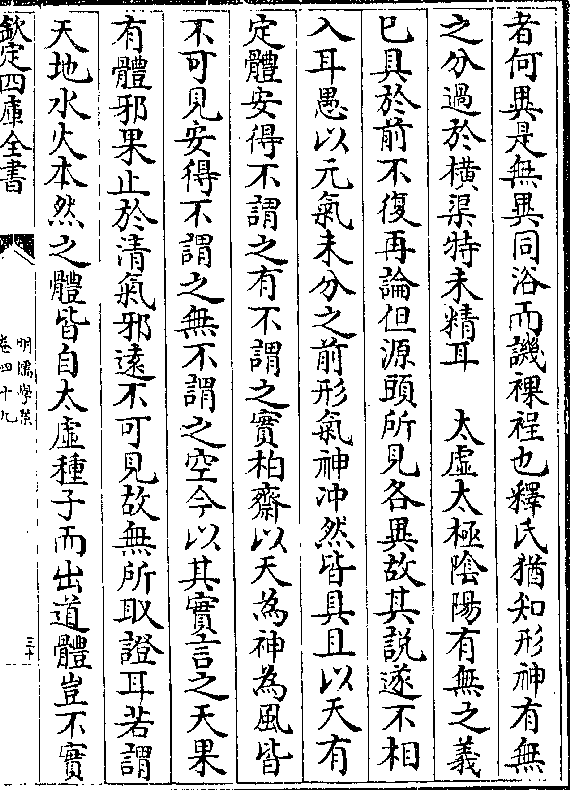 者何異是無異同浴而譏裸裎也釋氏猶知形神有無
之分過於横渠特未精耳　太虚太極陰陽有無之義
已具於前不復再論但源頭所見各異故其説遂不相
入耳愚以元氣未分之前形氣神冲然皆具且以天有
定體安得不謂之有不謂之實柏齋以天為神為風皆
不可見安得不謂之無不謂之空今以其實言之天果
有體邪果止於清氣邪遠不可見故無所取證耳若謂
天地水火本然之體皆自太虚種子而出道體豈不實
欽定四庫全書
明儒學案
卷四十九
三十